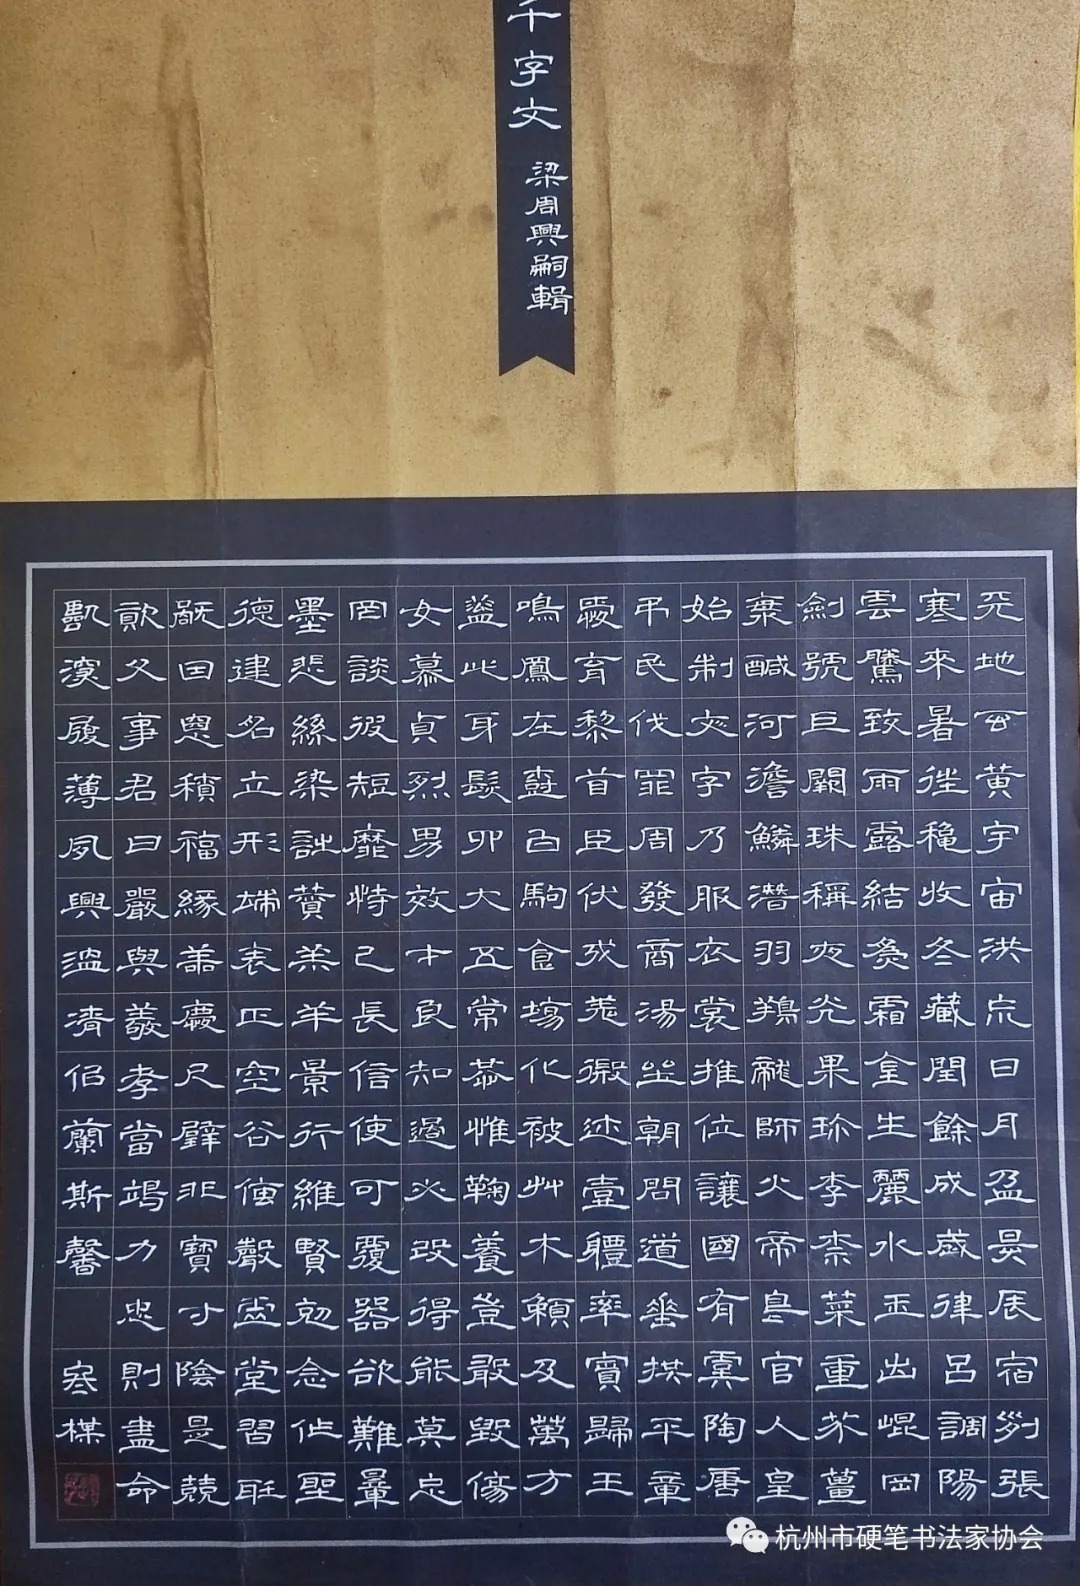 千字文 梁周興嗣輯
天地玄黃宇宙洪荒日月盈昃辰宿列張
寒來暑往穐收冬藏閏餘成歲律呂調陽
雲騰致雨露結為霜金生麗水玉出崐岡
劍號巨闕珠稱夜光果珍李柰菜重芥薑
海鹹河澹鱗潛羽翔龍師火帝鳥官人皇
始制文字乃服衣裳推位讓國有虞陶唐
弔民伐罪周發商湯坐朝問道垂拱平章
愛育黎首臣伏戎羌遐邇壹體率賓歸王
鳴鳳在樹白駒食場化被艸木賴及萬方
蓋此身髮四大五常恭惟鞠養豈敢毀傷
女慕貞烈男效才良知過必改得能莫忘
罔談彼短靡恃己長信使可覆器欲難量
墨悲絲染詩贊羔羊景行維賢剋念作聖
德建名立形端表正空谷傳聲虛堂習聽
禍因惡積福緣善慶尺璧非寶寸陰是競
資父事君曰嚴與敬孝當竭力忠則盡命
臨深履薄夙興溫凊似蘭斯馨 寒楳
杭州市硬笔书法家协会